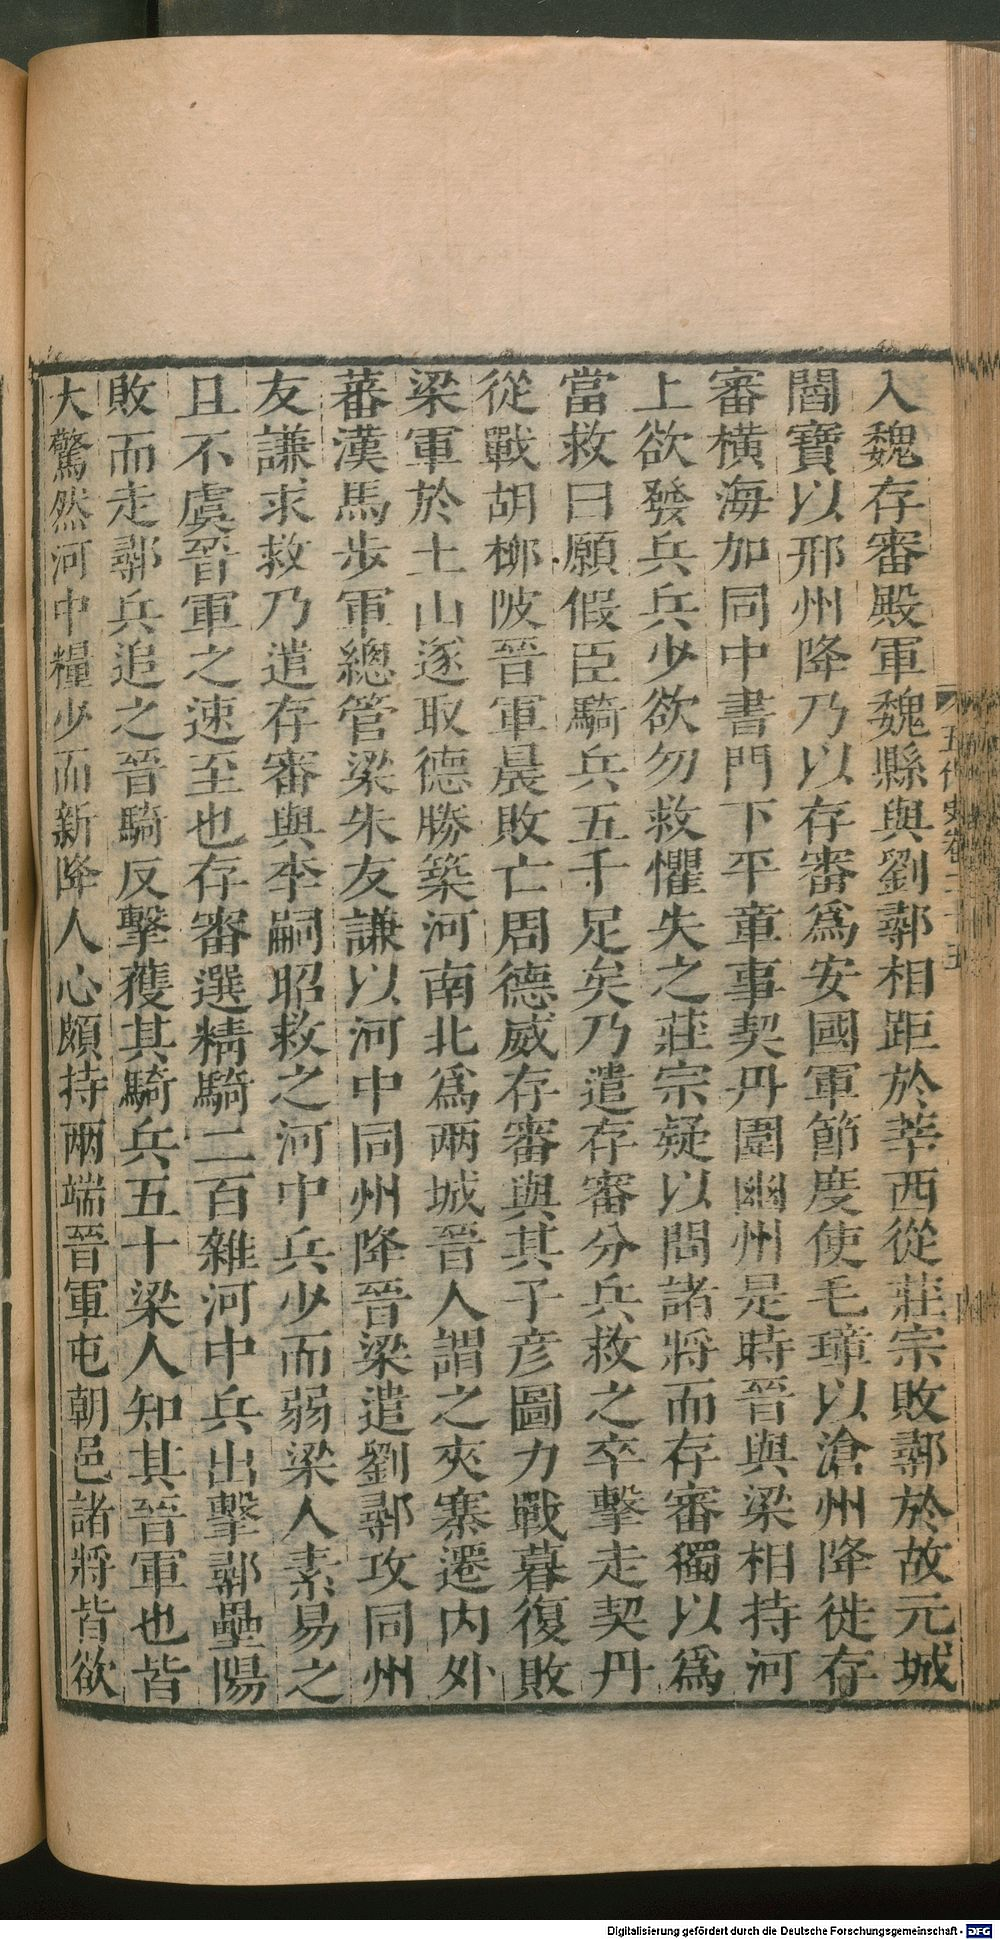 入魏存審殿軍魏縣與劉鄩相距於莘西從莊宗敗鄩於故元城
閻寶以邢州降乃以存審爲安國軍節度使毛璋以滄州降徙存
審橫海加同中書門下平章事契丹圍幽州是時晉與梁相持河
上欲發兵兵少欲勿救懼失之莊宗疑以問諸將而存審獨以爲
當救曰願假臣騎兵五千足矣乃遣存審分兵救之卒擊走契丹
從戰胡柳陂晉軍晨敗亡周德威存審與其子彥圖力戰暮復敗
梁軍於土山遂取德勝築河南北爲兩城晉人謂之夾寨遷内外
蕃漢馬步軍總管梁朱友謙以河中同州降晉梁遣劉鄩攻同州
友謙求救乃遣存審與李嗣昭救之河中兵少而弱梁人素易之
且不虞晉軍之速至也存審選精騎二百雜河中兵出擊鄩壘陽
敗而走鄩兵追之晉騎反擊獲其騎兵五十梁人知其晉軍也皆
大驚然河中糧少而新降人心頗持兩端晉軍屯朝邑諸將皆欲
五代史卷二十五
Digitalisierung gefördert durch die Deutsche Forschungsgemeinschaft - DFG